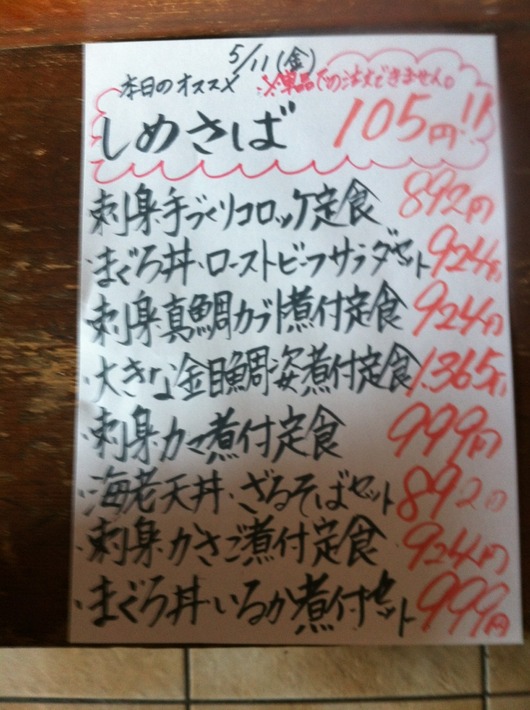 5/11(金)
本日のオススメ
※単品での注文できません。
しめさば 105円!!
・刺身・手づくりコロッケ定食 892円
・まぐろ丼・ローストビーフサラダセット 924円
・刺身・真鯛カブト煮付定食 924円
・大きな金目鯛姿煮付定食 1.365円
・刺身・カマ煮付定食 999円
・海老天丼・ざるそばセット 892円
・刺身・かさご煮付定食 924円
・まぐろ丼・いるか煮付セット 999円